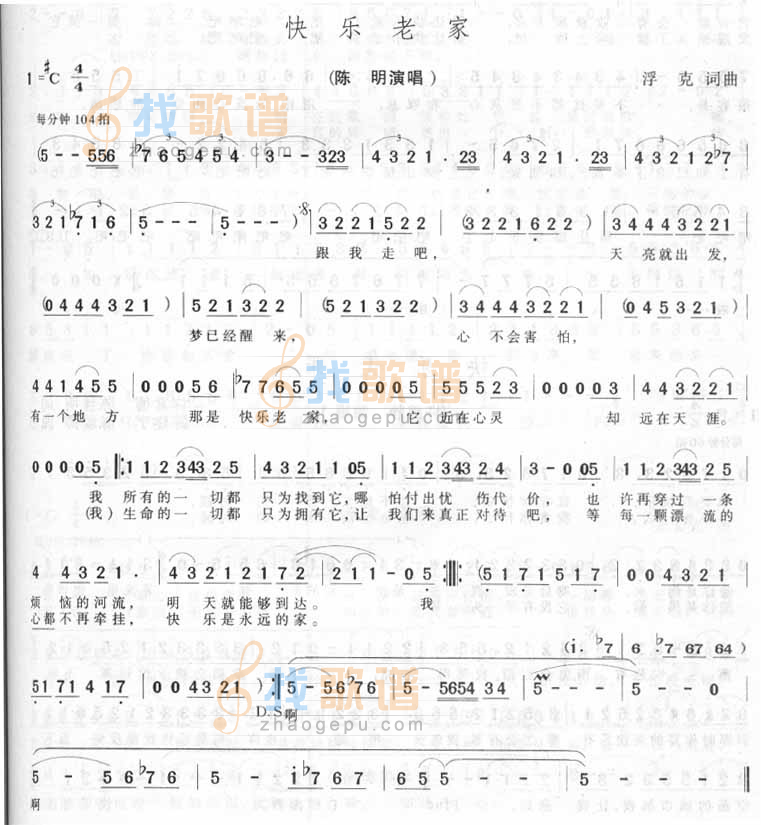 快乐老家
1=♯C 4/4 (陈 明演唱) 浮 克 词曲
每分钟104拍
找歌谱
zhaogepu.com
(5--556 | ♭765454 | 3--323 | 4321·23 | 4321·23 | 43212♭7 |
321♭716 | 5--- | 5---) | 3221522 | (3221622) | 34443221 |
跟我走吧, 天亮就出发,
(0444321) | 521322 | (521322) | 34443221 | (045321) |
梦已经醒来, 心不会害怕,
441455 | 00056 | ♭77655 | 00005 | 555523 | 00003 | 443221 |
有一个地方 那是快乐老家, 它近在心灵 却远在天涯。
找歌谱
zhaogepu.com
00005 ‖: 1123435 25 | 4321105 | 1123432 24 | 3-005 | 112343325 |
我 所有的一切都只为找到它,哪怕付出忧伤代价, 也许再穿过一条
(我)生命的一切都只为拥有它,让我们来真正对待吧, 等每一颗漂流的
4 4321· | 4321212172 | 2211 | 1-05 :‖ (5171517 | 004321 |
烦恼的河流, 明天就能够到达。 我
心都不再牵挂, 快乐是永远的家。
(i·♭7 | 6·♭76764)
5171417 | 004321) :‖ 5-56♭76 | 5-565434 | 5--- | 5--0 |
D.S啊
找歌谱
zhaogepu.com
5--56♭76 | 5--- | i♭7676 | 655-- | 5--- | 5--- ‖
啊